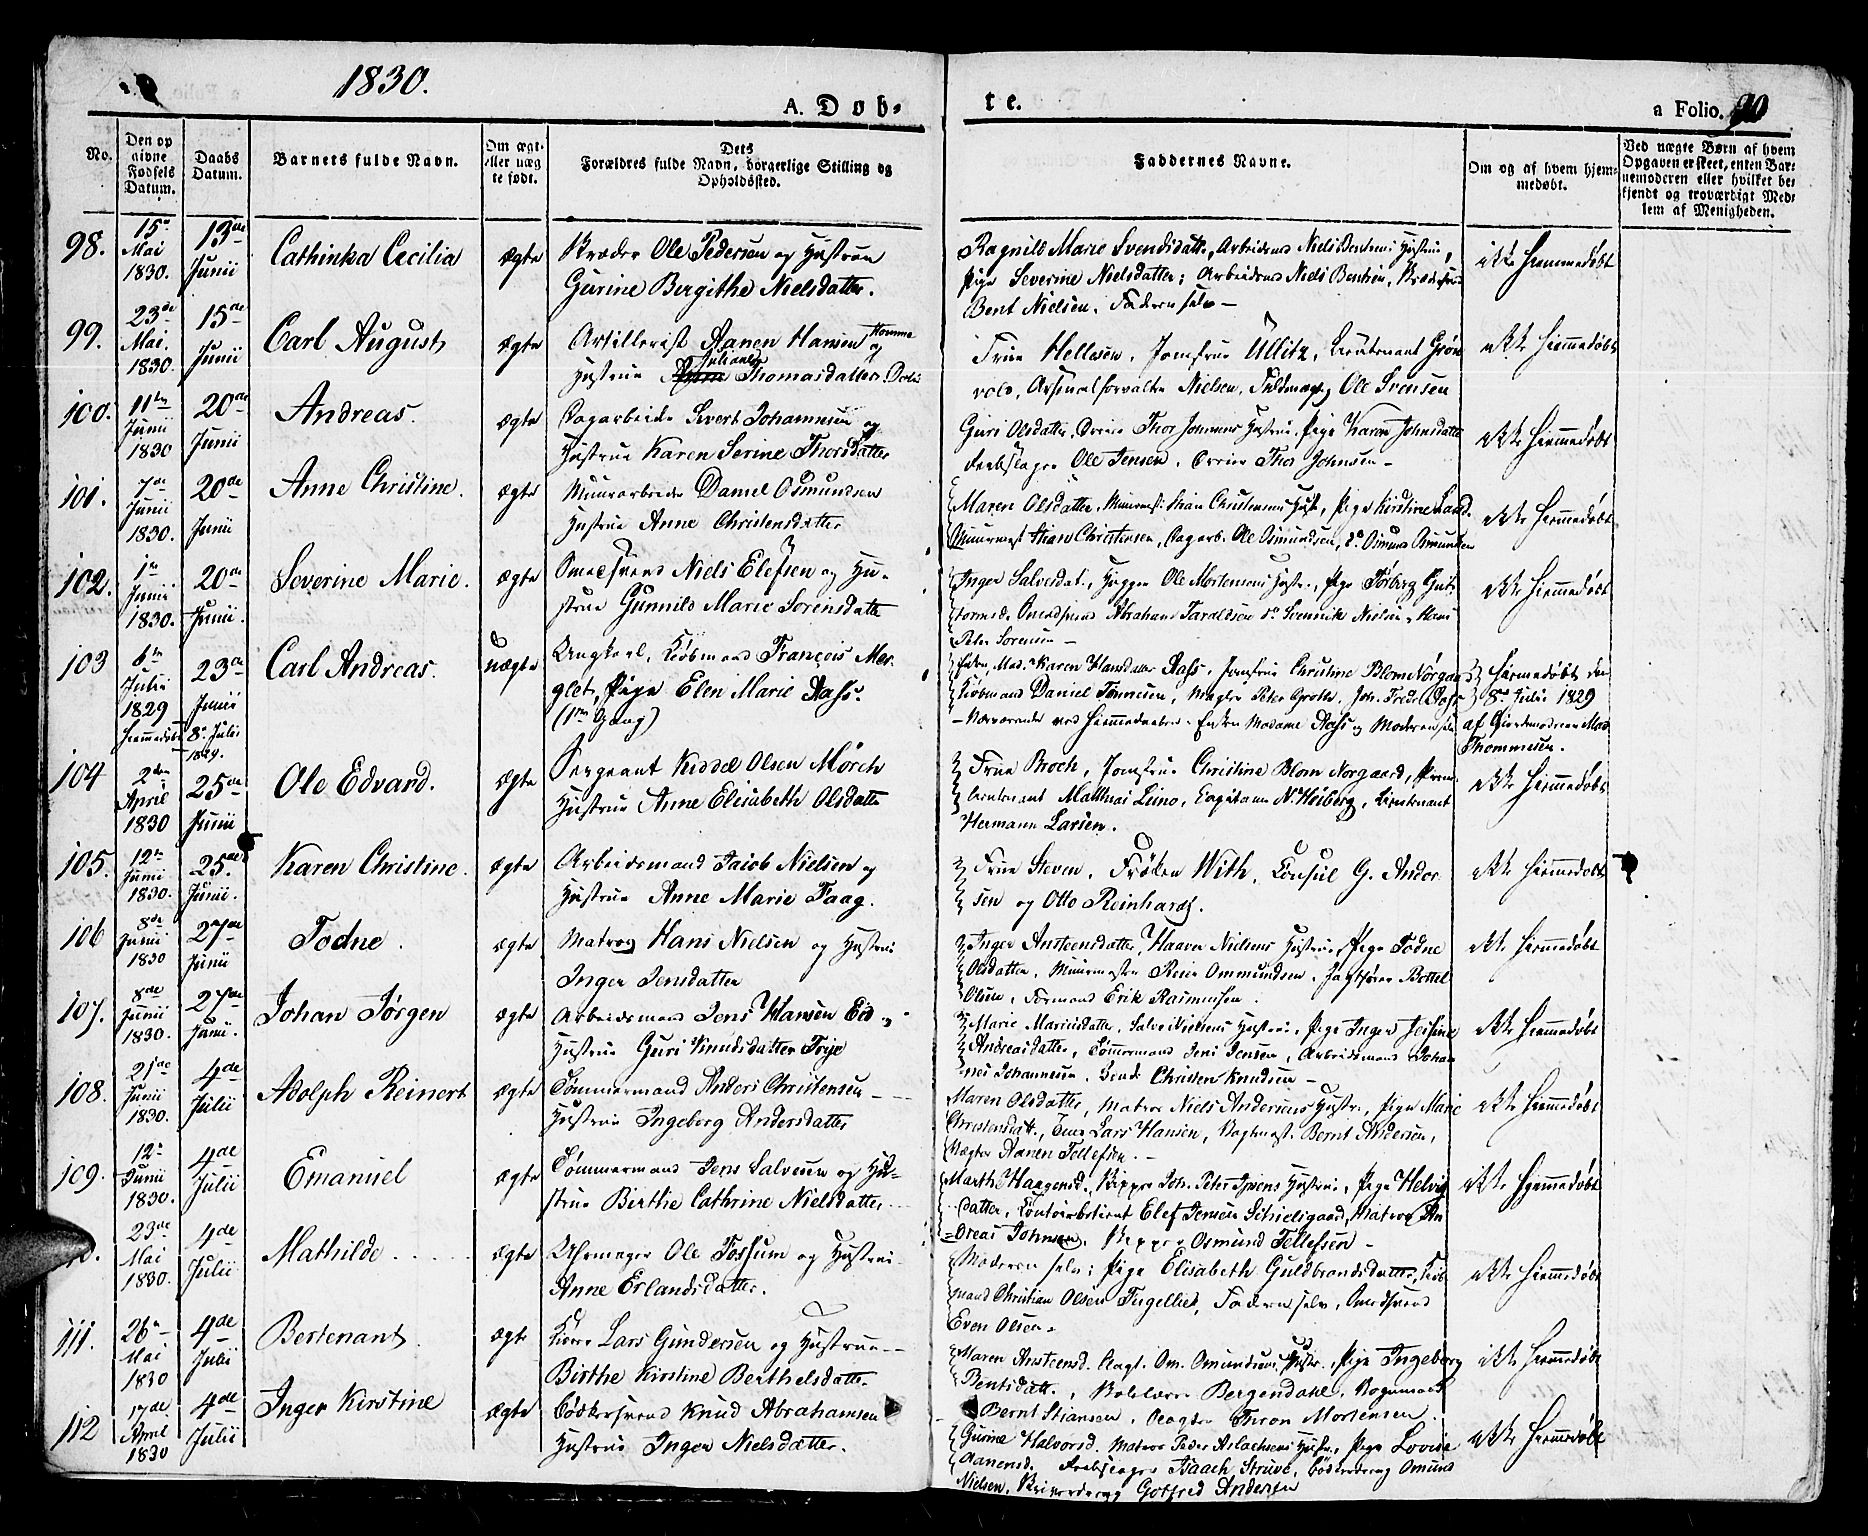 1830.
A. Døb-
te.
a Folio. 20
No.
Den op
givne
Fødsels
Datum.
Daabs
Datum.
Barnets fulde Navn.
Om ægt-
eller uæg
te født.
Dets
Forældres fulde Navn, borgerlige Stilling og
Opholdssted.
Faddernes Navne.
Om og af hvem hjem-
medøbt.
Ved uægte Børn af hvem
Opgaven er skeet, enten Bar-
nemoderen eller hvilket be-
kjendt og troværdigt Med-
lem af Menigheden.
98. 15de Mai 1830. 13de Junii Cathinka Cecilia ægte Ole Pedersen og Hustrue
Gurine Bergithe Nielsdatter.
Ragnild Marie Svendsdatt., Arbeidsmd Niels Bentsens Hustrue,
Pige Severine Nielsdatter; Arbeidsmd Niels Bentsen,
Bent Nielsen, Faderen selv —
ikke Hiemmedøbt
99. 23de Mai. 1830. 15de Junii Carl August ægte Artillerist Aanen Hansen Homme og
Hustrue Juliane Thomasdatter.
Frue Hellesen, Jomfrue Ullitz, Lieutenant Grøn
vold, Arsenalforvalter Nielsen, Ole Svensen
ikke Hiemmedøbt
100. 11te Junii 1830 20de Junii Andreas. ægte Dagarbeider Sivert Johannesen og
Hustrue Karen Serine Thorsdatter
Guri Olsdatter, Thor Johnsens Hustrue, Pige Karen Johnsdatter
Ole Jensen, Thor Johnsen —
ikke Hiemmedøbt
101. 7de Junii 1830. 20de Junii Anne Christine. ægte Muurarbeider Daniel Osmundsen
Hustrue Anne Christensdatter
Maren Olsdatter, Christensens Hust., Pige Kirstine
Christensen, Dagarb. Ole Osmundsen, do Osmund Osmundsen
ikke Hiemmedøbt
102. 1te Junii 1830. 20de Junii. Severine Marie. ægte Smedsvend Niels Elefsen og Hu-
strue Gunnild Marie Sørensdatter
Inger Salvesdat., Ole Mortensens Hustr., Pige Torborg Gut-
tormsd. Smedsvend Abraham Taraldsen do Nielsen,
Peder Sørensen —
ikke Hiemmedøbt
103 6te Julii 1829 Hiemmedøbt 23de Junii 8de Julii 1829. Carl Andreas. uægte Ungkarl, Kiøbmand François
Pige Elen Marie Aass.
(1ste Gang)
Enken, Mad. Karen Hansdatter Aass, Jomfrue Christine Blom Nørgaard
Kiøbmand Daniel Tønnesen, Mægler Peter Grothe, Joh. Fredr.
— Nærværende ved Hiemmedaaben — Enken Madame Aass og Moderen selv
Hiemmedøbt den
8de Julii 1829
af Giordemoderen Mad.
Thommesen.
104 2den April 1830 25de Junii Ole Edvard. ægte Sergeant Kiddel Olsen Mørch
Hustrue Anne Elisabeth Olsdatter
Frue Broch, Jomfrue Christine Blom Nørgaard, Prem.
Lieutenant Mathias Leino, Capitaine N. Heiberg, Lieutenant
Hermann Larsen.
ikke Hiemmedøbt
105. 12te Junii 1830. 25de Junii. Karen Christine. ægte Arbeidsmand Jacob Nielsen og
Hustrue Anne Marie Faag.
Frue Steven, Frøken With, Consul G. Ander-
sen og Otto Reinhardt.
ikke Hiemmedøbt
106 8de Junii 1830 27de Junii Todne. ægte Matros Hans Nielsen og Hustrue
Inger Jensdatter
Inger Anstensdatter, Haaver Nielsens Hustrue, Pige Todne
Olsdatter, Muurmester Reier Ommundsen, Bottel
Olsen, Formand Erik Rasmussen.
ikke Hiemmedøbt
107. 8de Junii 1830. 27de Junii. Johan Jørgen ægte Arbeidsmand Jens Hansen Eid
Hustrue Guri Knudsdatter Frije
Marie Mariusdatter, Salve Nielsens Hustrue, Pige Inger
Andreasdatter, Tømmermand Jens Jensen, Arbeidsmand Johan-
nes Johannesen, Christen Knudsen —
ikke Hiemmedøbt
108. 21de Junii 1830. 4de Julii Adolph Reinert ægte Tømmermand Anders Christensen —
Hustrue Ingeborg Andersdatter
Maren Olsdatter, Matros Niels Andersens Hustr., Pige Marie
Christensdat., Lars Hansen, Bernt Andersen,
Aanen Tellefsen. —
ikke Hiemmedøbt
109. 12te Junii 1830. 4de Julii Emanuel ægte Tømmermand Jens Salvesen og Hu-
strue Birthe Cathrine Nielsdatter
Marthe Haagensd., Skipper Joh. Peter Hustrue, Pige Helvig
datter, Contoirbetient Elef Jensen Schielsgaard, Matros An-
dreas Johnsen, Skipper Osmund Tellefsen —
ikke Hiemmedøbt
23de Mai 1830. 4de Julii Mathilde ægte Uhrmager Ole Fossum og Hustrue
Anne Erlandsdatter.
Moderen selv; Pige Elisabeth Guldbrandsdatter, Kiøb-
mand Christian Olsen Faderen selv, Smedsvend
Even Olsen.
ikke Hiemmedøbt
111. 26de Mai 1830 4de Julii Bertenant. ægte Lars Gundersen og Hustrue —
Birthe Kirstine Berthelsdatter.
Maren Anstensd. Om. Omundsens Hustr., Pige Ingeborg
Bentsdatt., Skolelærer Bergendahl,
Bernt Stiansen, Thron Mortensen.
ikke Hiemmedøbt
112 17de April 1830 4de Julii Inger Kirstine ægte Bødkersvend Knud Abrahamsen
Hustrue Inger Nielsdatter.
Gurine Halvorsd. Matros Peder Aslachsens Hustr., Pige Lovise
Aanensd. Isaach Struve, Osmund
Nielsen, Gotfred Andersen
ikke Hiemmedøbt